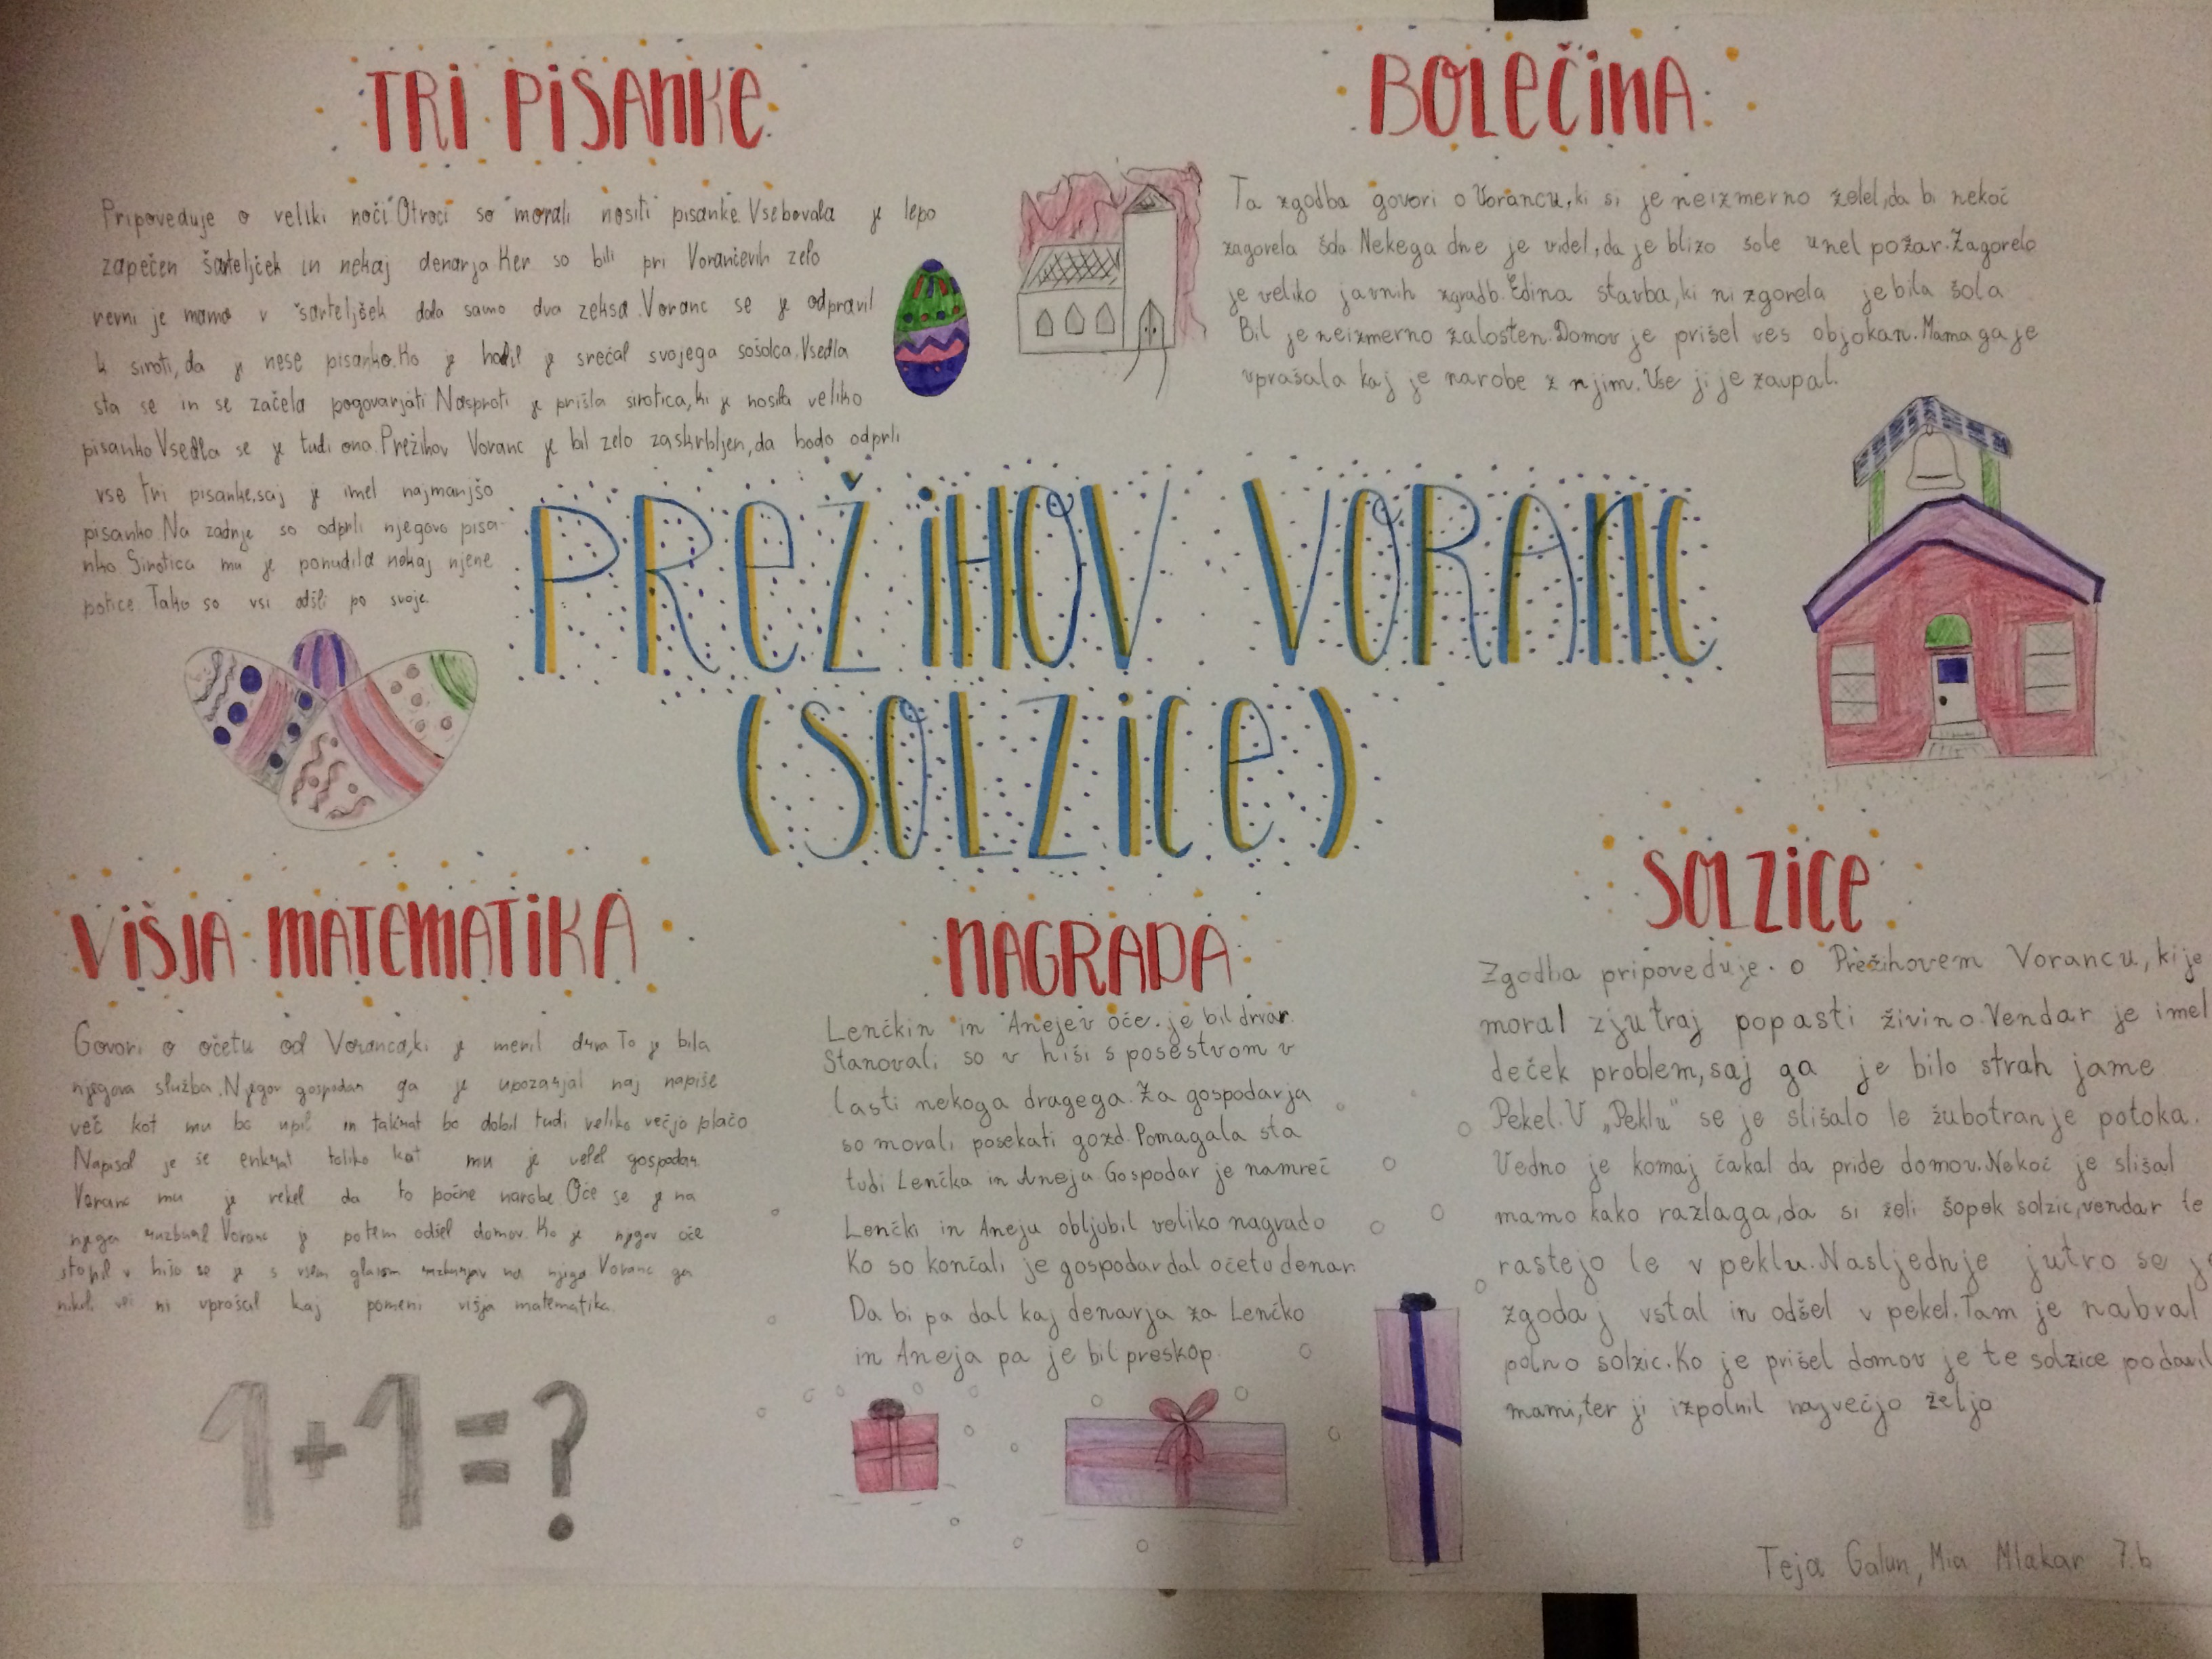 TRI PISANKE
Pripoveduje o veliki noči Otroci so morali nositi pisanke. Vsebovala je lepo
zapečen šarteljček in nekaj denarja Ker so bili pri Vorančevih zelo
revni je mama v šarteljšek dala samo dva zeksa. Voranc se je odpravil
k siroti, da je nese pisanko. Ko je hodil je srečal svojega sošolca. Vsedla
sta se in se začela pogovarjati Nasproti je prišla sirotica, ki je nosila veliko
pisanko Vsedla se je tudi ona. Prežihov Voranc je bil zelo zaskrbljen, da bodo odprli
vse tri pisanke, saj je imel najmanjšo
pisanko Na zadnje so odprli njegovo pisa-
nko Sirotica mu je ponudila nekaj njene
potice. Tako so vsi odšli po svoje
BOLEČINA
Ta zgodba govori o Vorancu, ki si je neizmerno želel, da bi nekoč
zagorela šola Nekega dne je videl, da je blizo šole unel požar. Zagorelo
je veliko javnih zgradb. Edina stavba, ki ni zgorela je bila šola
Bil je neizmerno žalosten. Domov je prišel ves objokan. Mama ga je
vprašala kaj je narobe z njim. Vse ji je zaupal.
PREŽIHOV VORANC
(SOLZICE)
VIŠJA MATEMATIKA
Govori o očetu od Voranca, ki je meril drva To je bila
njegova služba. Njegov gospodar ga je upozarjal naj napiše
več kot mu bo upil in takrat bo dobil tudi veliko večjo plačo
Napisal je še enkrat toliko kot mu je velel gospodar.
Voranc mu je rekel da to počne narobe Oče se je na
njega Voranc je potem odšel domov. Ko je njgov oče
stopil v hišo se je s vsem glasom na njega Voranc ga
nikoli več ni vprašal kaj pomeni višja matematika.
1+1=?
NAGRADA
Lenčkin in Anejev oče. je bil drvar
Stanovali so v hiši s posestvom v
lasti nekoga dragega. Za gospodarja
so morali posekati gozd. Pomagala sta
tudi Lenčka in Aneja Gospodar je namreč
Lenčki in Aneju obljubil veliko nagrado
Ko so končali je gospodar dal očetu denar.
Da bi pa dal kaj denarja za Lenčko
in Aneja pa je bil preskop.
SOLZICE
Zgodba pripoveduje. o Prežihovem Vorancu, ki je
moral zjutraj popasti živino. Vendar je imel
deček problem, saj ga je bilo strah jame
Pekel. V „Peklu" se je slišalo le žubotranje potoka.
Vedno je komaj čakal da pride domov. Nekoč je slišal
mamo kako razlaga, da si želi šopek solzic, vendar te
rastejo le v peklu. Nasljednje jutro se je
zgodaj vstal in odšel v pekel. Tam je nabral
polno solzic. Ko je prišel domov je te solzice podaril
mami, ter ji izpolnil največjo željo
Teja Galun, Mia Mlakar 7.b